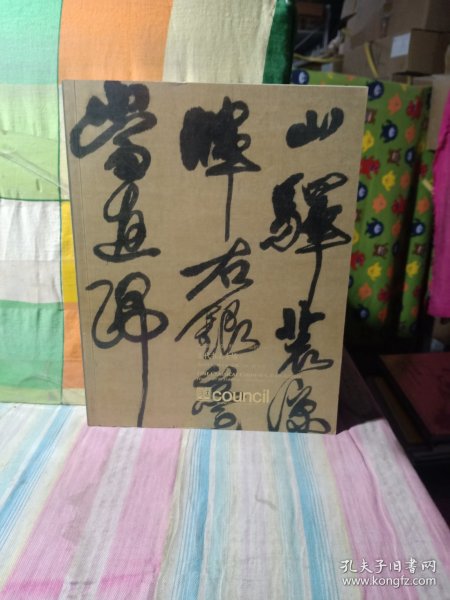 山驛荒涼
暉右銀臺
當直歸
council
孔夫子旧书网
www.kongfz.com